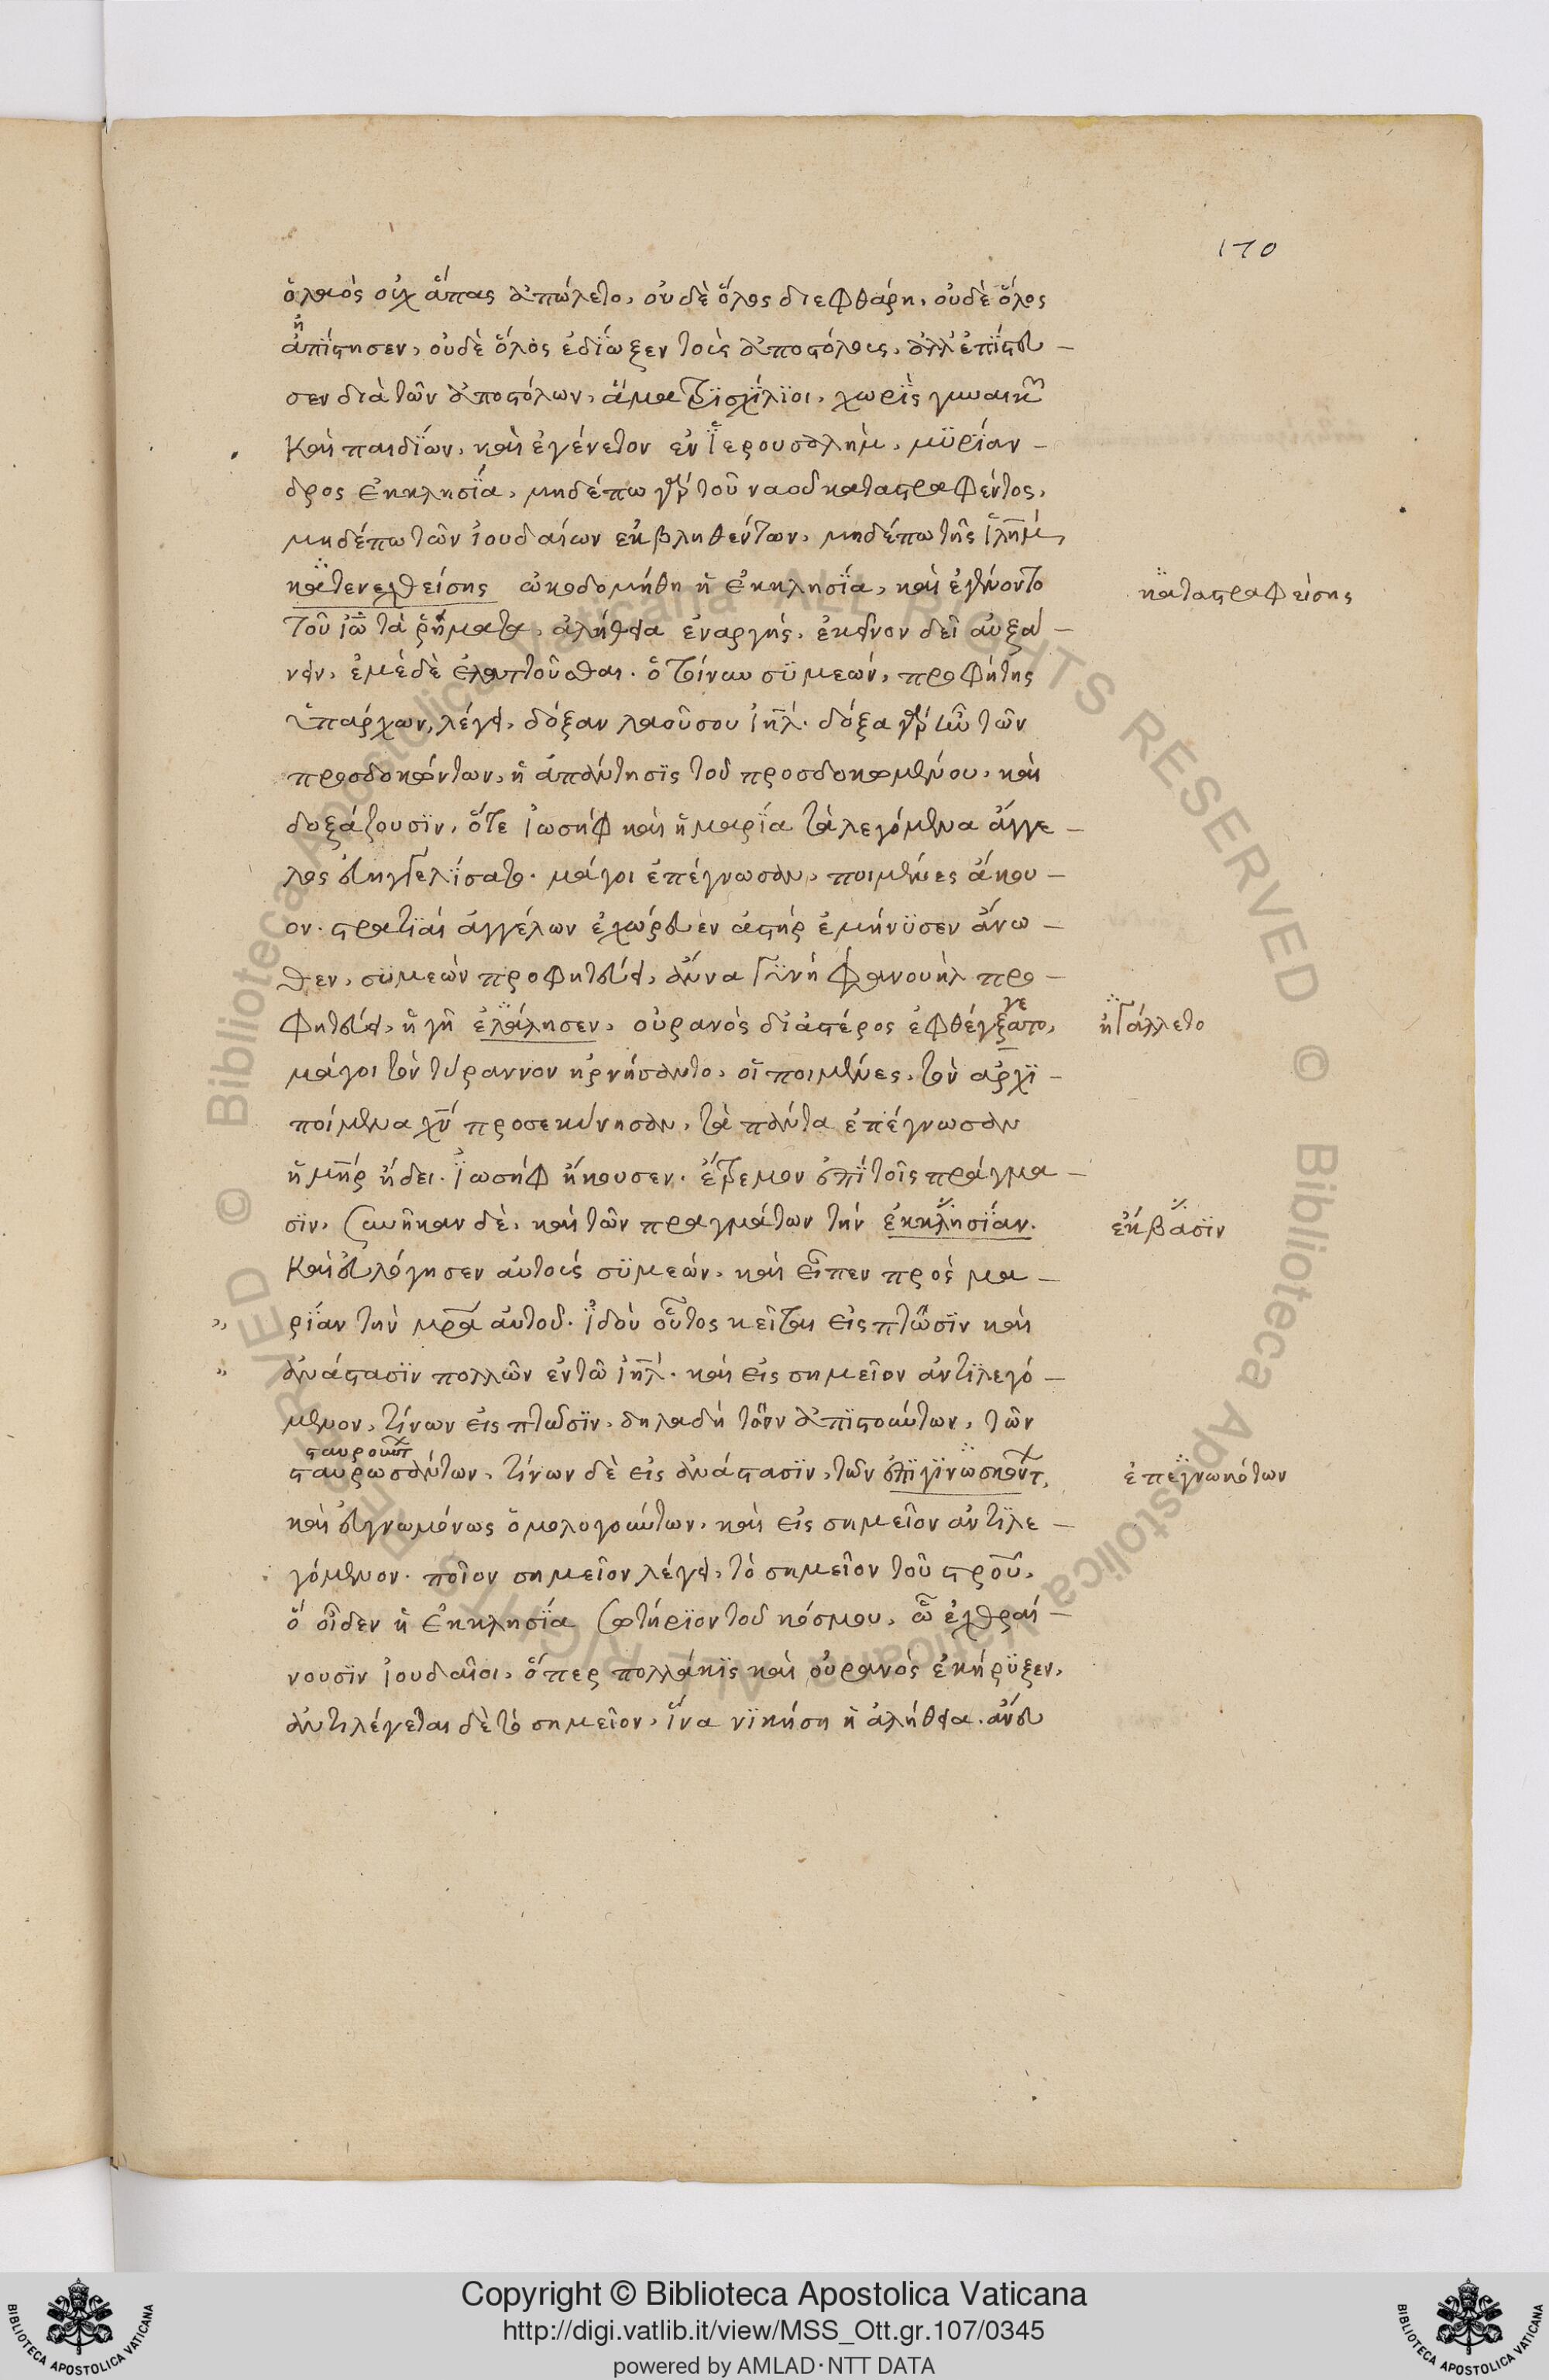 170
ὁ λαὸς οὐχ ἅπας ἀπώλετο, οὐδὲ ὅλος διεφθάρη, οὐδὲ ὅλος
ἠπίστησεν, οὐδὲ ὅλος ἐδίωξεν τοὺς ἀποστόλους, ἀλλ' ἐπίστευ –
σεν διὰ τῶν ἀποστόλων, ἅμα τρϊσχίλϊοι, χωρὶς γυναικῶν
καὶ παιδΐων, καὶ ἐγένετον ἐν Ϊερουσαλὴμ, μϋρίαν –
δρος ἐκκλησΐα, μηδέπω γὰρ τοῦ ναοῦ καταστραφέντος,
μηδέπω τῶν ἰουδαίων ἐκβληθέντων, μηδέπω τῆς ἱλη̅μ,
κατενεχθείσης ὠκοδομήθη ἡ ἐκκλησΐα, καὶ ἐγένοντο
καταστραφείσης
τοῦ ἰω̅ τὰ ῥήματα, ἀλήθεια ἐναργὴς, ἐκεῖνον δεῖ αὐξά –
νειν, ἐμὲ δὲ ἐλαττοῦσθαι. ὁ τοίνυν σϋμεών, προφήτης
ὑπάρχων, λέγει, δόξαν λαοῦ σου ἰη̅λ. δόξα γὰρ ἦν τῶν
προσδοκώντων, ἡ ἀπάντησϊς τοῦ προσδοκωμένου, καὶ
δοξάζουσϊν, ὅτε ἰωσὴφ καὶ ἡ μαρΐα τὰ λεγόμενα ἄγγε –
λος εὐηγγελΐσατο. μάγοι ἐπέγνωσαν, ποιμένες ἄκου –
ον. στρατϊαὶ ἀγγέλων ἐχώρευεν ἀστὴρ ἐμήνϋσεν ἄνω –
θεν, σϋμεὼν προφητεύει, ἄννα γϋνὴ φανουὴλ προ –
φητεύει, ἡ γῆ ἐλάλησεν, οὐρανὸς δι' ἀστέρος ἐφθέγξατο,
γε
ἠγάλλετο
μάγοι τὸν τύραννον ἠρνήσαντο, οἱ ποιμένες, τὸν ἀρχϊ –
ποίμενα χν̅ προσεκύνησαν, τὰ πάντα ἐπέγνωσαν
ἡ μη̅ρ ᾔδει. Ϊωσὴφ ἤκουσεν. ἔτρεμον ἐπϊ τοῖς πράγμα –
σϊν, συνῆκαν δὲ, καὶ τῶν πραγμάτων τὴν ἐκκλησΐαν.
ἐκβασϊν
Καὶ εὐλόγησεν αὐτοὺς σϋμεὼν, καὶ εἶπεν πρὸς μα –
ρΐαν τὴν μρ̅α αὐτοῦ. Ϊδοὺ οὗτος κεῖται εἰς πτῶσϊν καὶ
ἀνάστασϊν πολλῶν ἐν τῶ ἰη̅λ. καὶ εἰς σημεῖον ἀντϊλεγό –
μενον, τίνων εἰς πτῶσϊν, δηλαδὴ τῶν ἀπϊστούντων, τῶν
σταυρούντ
σταυρωσάντων, τίνων δὲ εἰς ἀνάστασϊν, τῶν ἐπϊγϊνωσκόντ,
ἐπεγνωκότων
καὶ εὐγνωμόνως ὁμολογούντων, καὶ εἰς σημεῖον ἀντϊλε –
γόμενον. ποῖον σημεῖον λέγει, τὸ σημεῖον τοῦ στρο̅υ,
ὃ οἶδεν ἡ ἐκκλησΐα σωτήρϊον τοῦ κόσμου, ᾧ ἐχθραί –
νουσϊν ἰουδαῖοι, ὅπερ πολλάκϊς καὶ οὐρανὸς ἐκήρϋξεν,
ἀντιλέγεται δὲ τὸ σημεῖον, ἵνα νϊκήση ἡ ἀλήθεια. ἄνευ
Copyright © Biblioteca Apostolica Vaticana
http://digi.vatlib.it/view/MSS_Ott.gr.107/0345
powered by AMLAD·NTT DATA